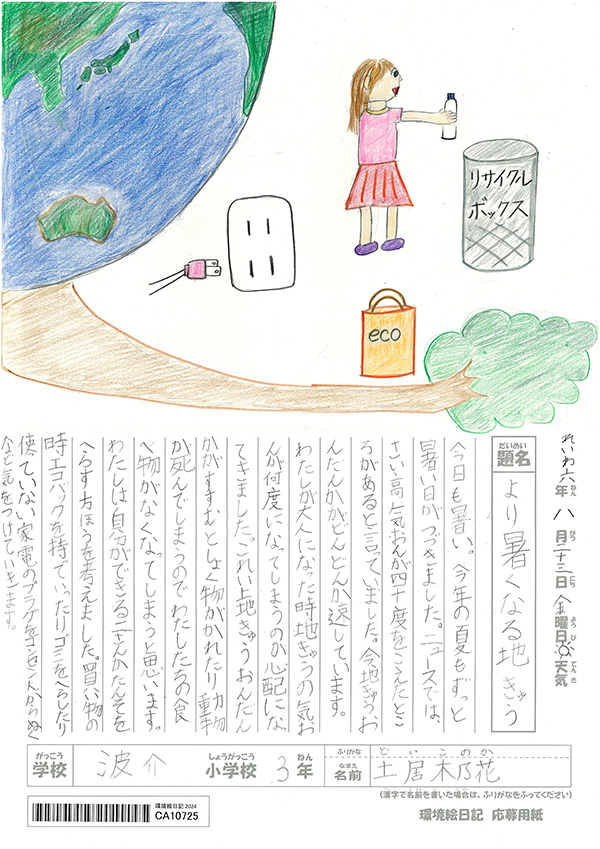 リサイクル
ボックス
eco
れいわ六年八月二十三日金曜日天気
ねん
がつ
にち
ようび
てんき
だいめい
題名
より暑くなる地きゅう
今日も暑い。今年の夏もずっと
暑い日がつづきました。ニュースでは、
さい高気おんが四十度をこえたとこ
ろがあると言っていました。今地きゅうお
んだんかがどんどんか速しています。
わたしが大人になった時地きゅうの気お
んが何度になってしまうのか心配になっ
てきました。これい上地きゅうおんだん
かがすすむとしょく物がかれたり動物
が死んでしまうのでわたしたちの食
べ物がなくなってしまうと思います。
わたしは自分ができる二さんかたんそを
へらす方ほうを考えました。買い物の
時エコバックを持ていったりゴミをへらしたり
使ていない家電のプラグをコンセントからぬく
など気をつけていきます。
がっこう
学校
波介
しょうがっこう
小学校
3
ねん
年
ふりがな
なまえ
名前
どいこのか
土居木乃花
(漢字で名前を書いた場合は、ふりがなをふってください)
環境絵日記2024
CA10725
環境絵日記 応募用紙